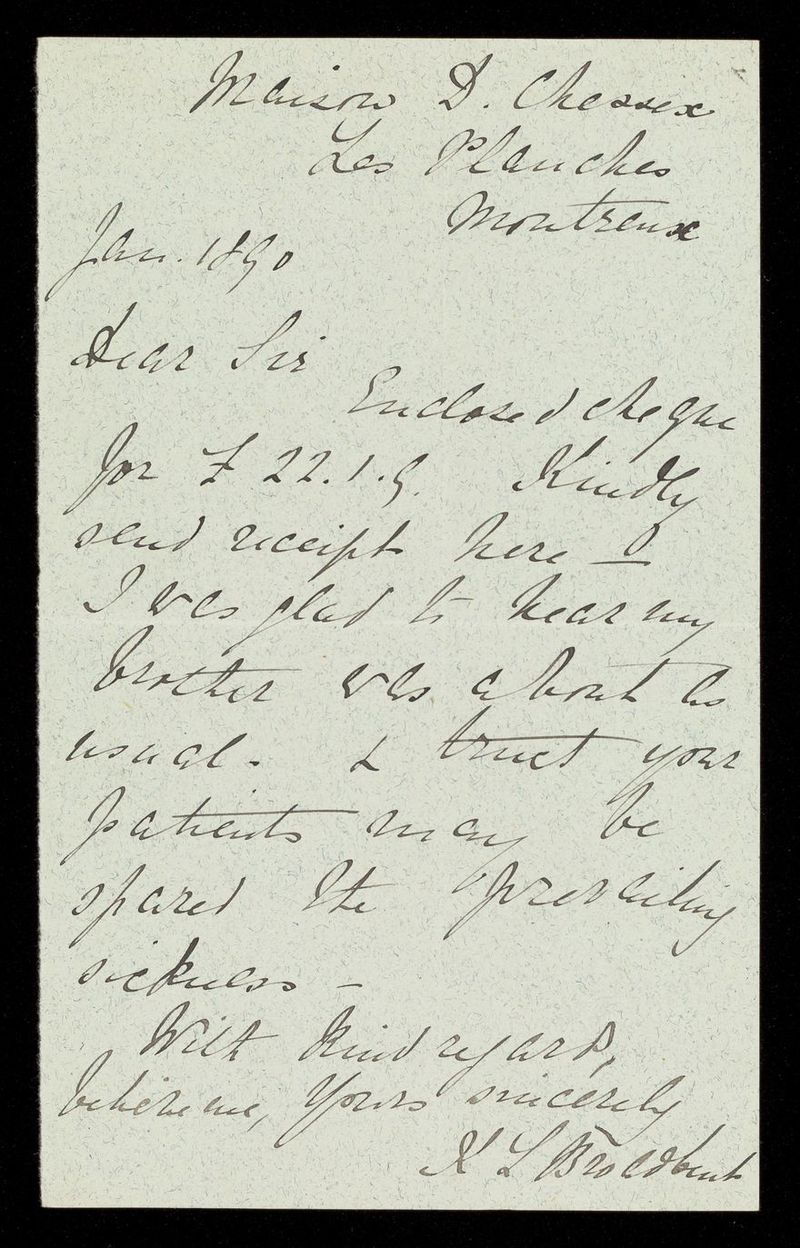 Maison D. Chessex
Les Planches
Montreux
Jan. 1890
Dear Sir
Enclosed cheque
for £ 22.1.9. Kindly
send receipt here –
I was glad to hear my
brother was about as
usual. & trust your
patients may be
spared the prevailing
sickness –
With kind regards,
believe me, Yours sincerely
K L Broadbent